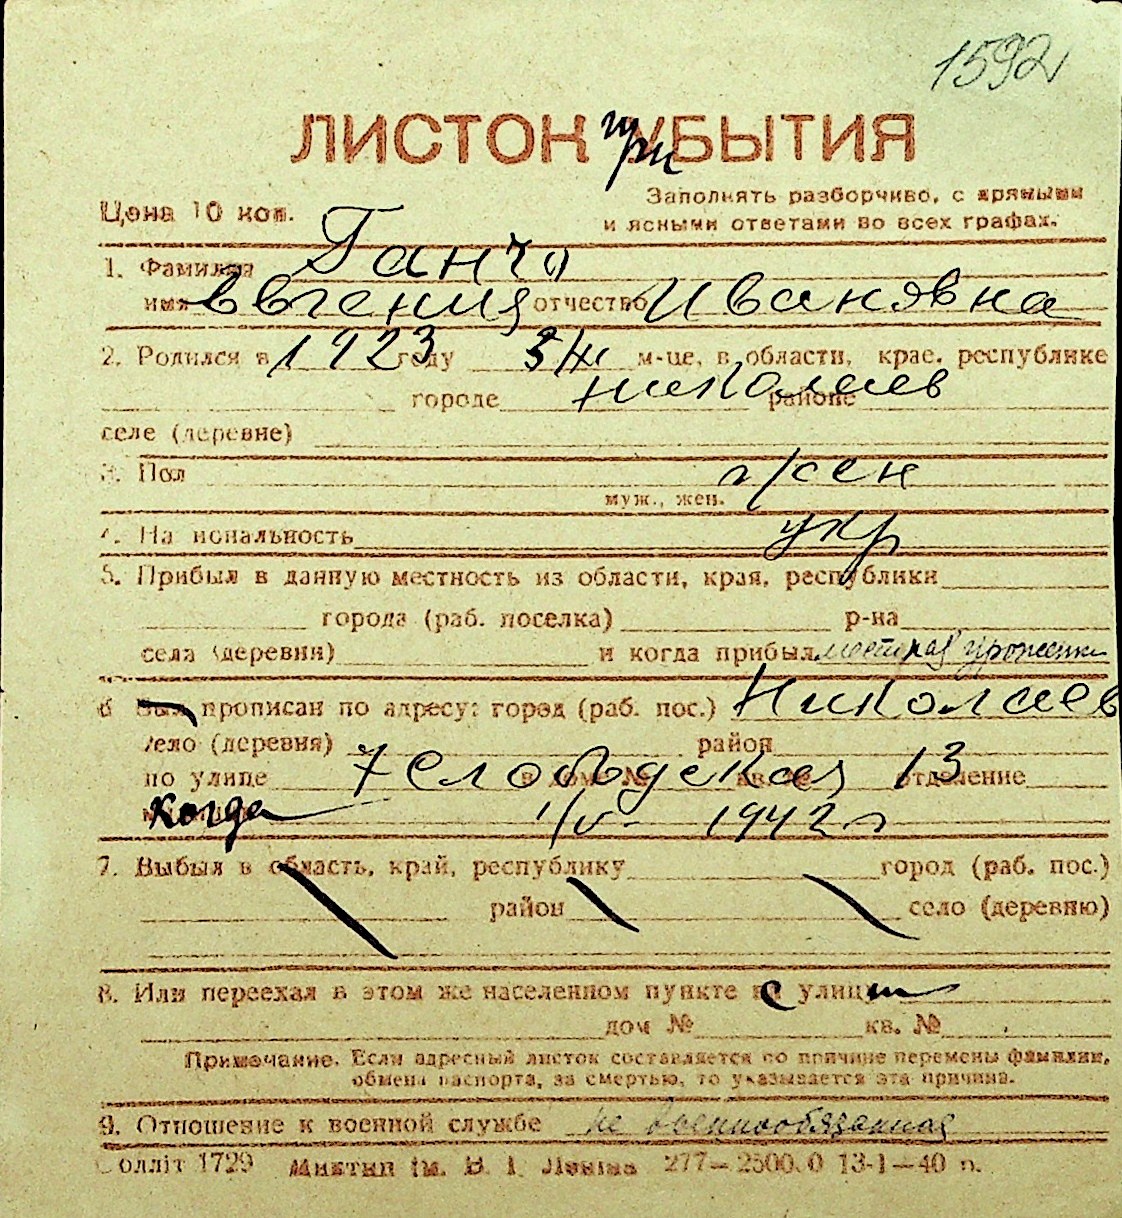 1592
ЛИСТОК при УБЫТИЯ
Заполнять разборчиво, с прямыми
Цена 10 коп.
и ясными ответами во всех графах.
1. Фамилия Ганчо
имя Евгения отчество Ивановна
2. Родился в 1923 году м-це, в области, крае, республике
городе Николаев районе
селе (деревне)
3. Пол жен
муж., жен.
4. Национальность укр
5. Прибыл в данную местность из области, края, республики
города (раб. поселка) р-на
села (деревни) и когда прибыл местная уроженка
6 Был прописан по адресу: город (раб. пос.) Николаев
село (деревня) район
по улице в доме № кв. № 13 отделение
когда 1/V - 1942 г
7. Выбыл в область, край, республику город (раб. пос.)
район село (деревню)
8. Или переехал в этом же населенном пункте с улицы
дом № кв. №
Примечание. Если адресный листок составляется по причине перемены фамилии,
обмена паспорта, за смертью, то указывается эта причина.
9. Отношение к военной службе не военнообязанная
олліт 1729 Миктип ім. В. І. Леніна 277—2500.0 13-1—40 п.